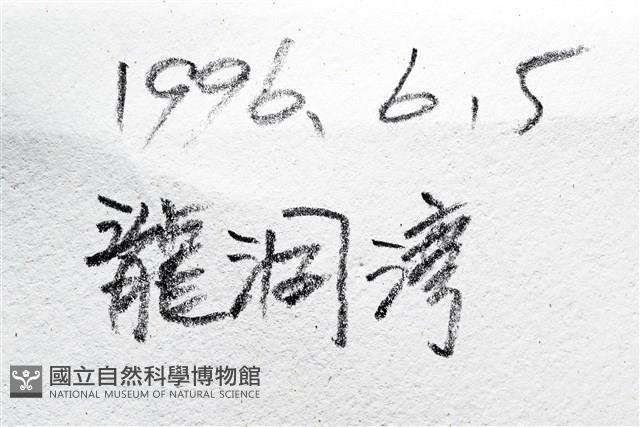 1996、6、5
龍洞湾
國立自然科學博物館
NATIONAL MUSEUM OF NATURAL SCIENCE